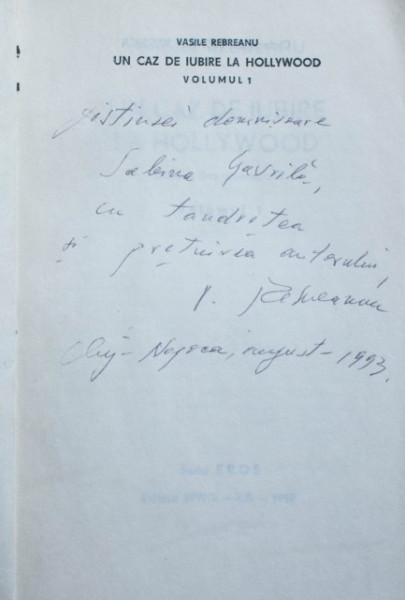 VASILE REBREANU
UN CAZ DE IUBIRE LA HOLLYWOOD
VOLUMUL 1
Distinsei domnișoare
Sabina Gavrilă,
cu tandrețea
și prețuirea autorului,
V. Rebreanu
Cluj-Napoca, august-1993.